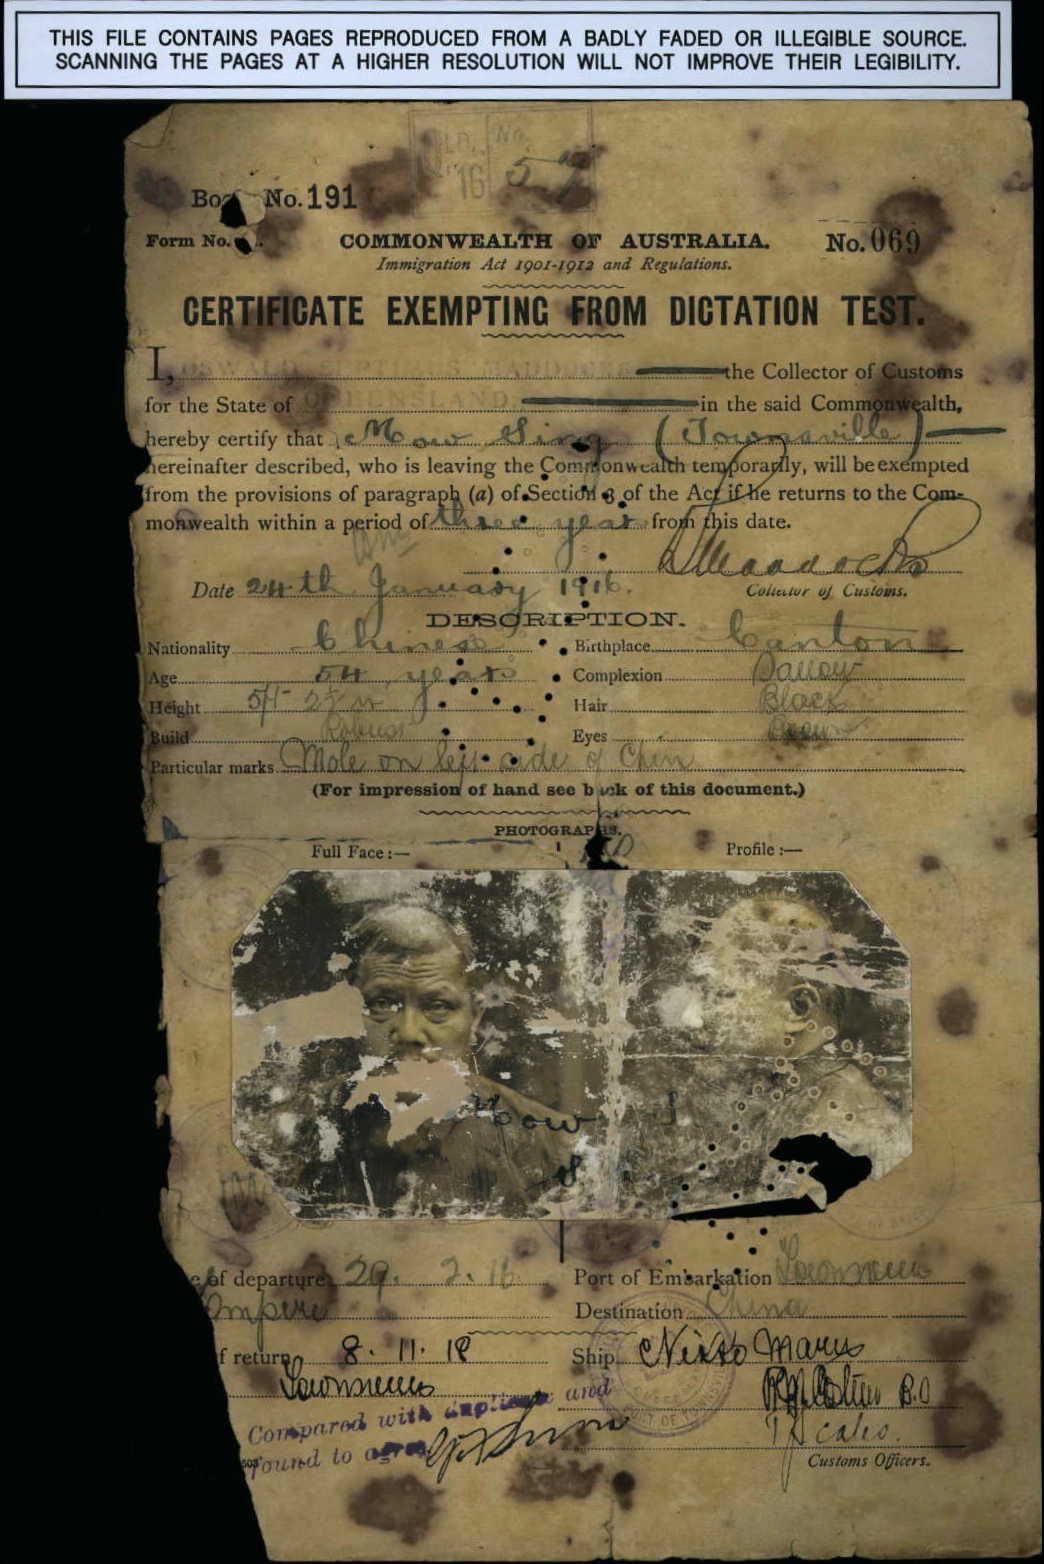 THIS FILE CONTAINS PAGES REPRODUCED FROM A BADLY FADED OR ILLEGIBLE SOURCE.
SCANNING THE PAGES AT A HIGHER RESOLUTION WILL NOT IMPROVE THEIR LEGIBILITY.
QLD. No.
'16 57
No. 191
Form No.
COMMONWEALTH OF AUSTRALIA.
No. 069
Immigration Act 1901-1912 and Regulations.
CERTIFICATE EXEMPTING FROM DICTATION TEST.
I, OSWALD SEPTIMUS MADDOCKS the Collector of Customs
for the State of QUEENSLAND, in the said Commonwealth,
hereby certify that Mow Sing (Townsville)
hereinafter described, who is leaving the Commonwealth temporarily, will be exempted
from the provisions of paragraph (a) of Section 3 of the Act if he returns to the Com-
monwealth within a period of three years from this date.
Maddocks
Date 24th January 1916.
Collector of Customs.
DESCRIPTION.
Nationality Chinese Birthplace Canton
Age 54 years Complexion Sallow
Height 5ft 2½ in Hair Black
Build Robust Eyes Brown
Particular marks Mole on left side of Chin
(For impression of hand see back of this document.)
PHOTOGRAPHS.
Full Face :— Profile :—
Mow
S
of departure 29. 2. 16 Port of Embarkation Townsville
Empire Destination China
f return 8. 11. 18 Ship Nikko Maru
Townsville
B.O
Compared with duplicate and
found to agree
Customs Officers.